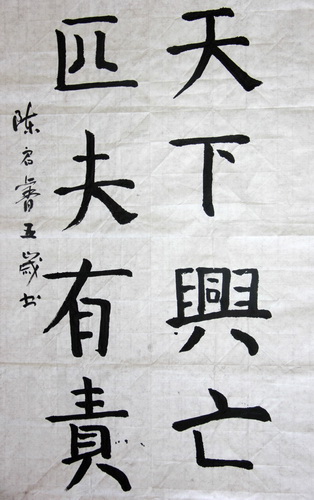 天下興亡
匹夫有責
陈君睿五岁书